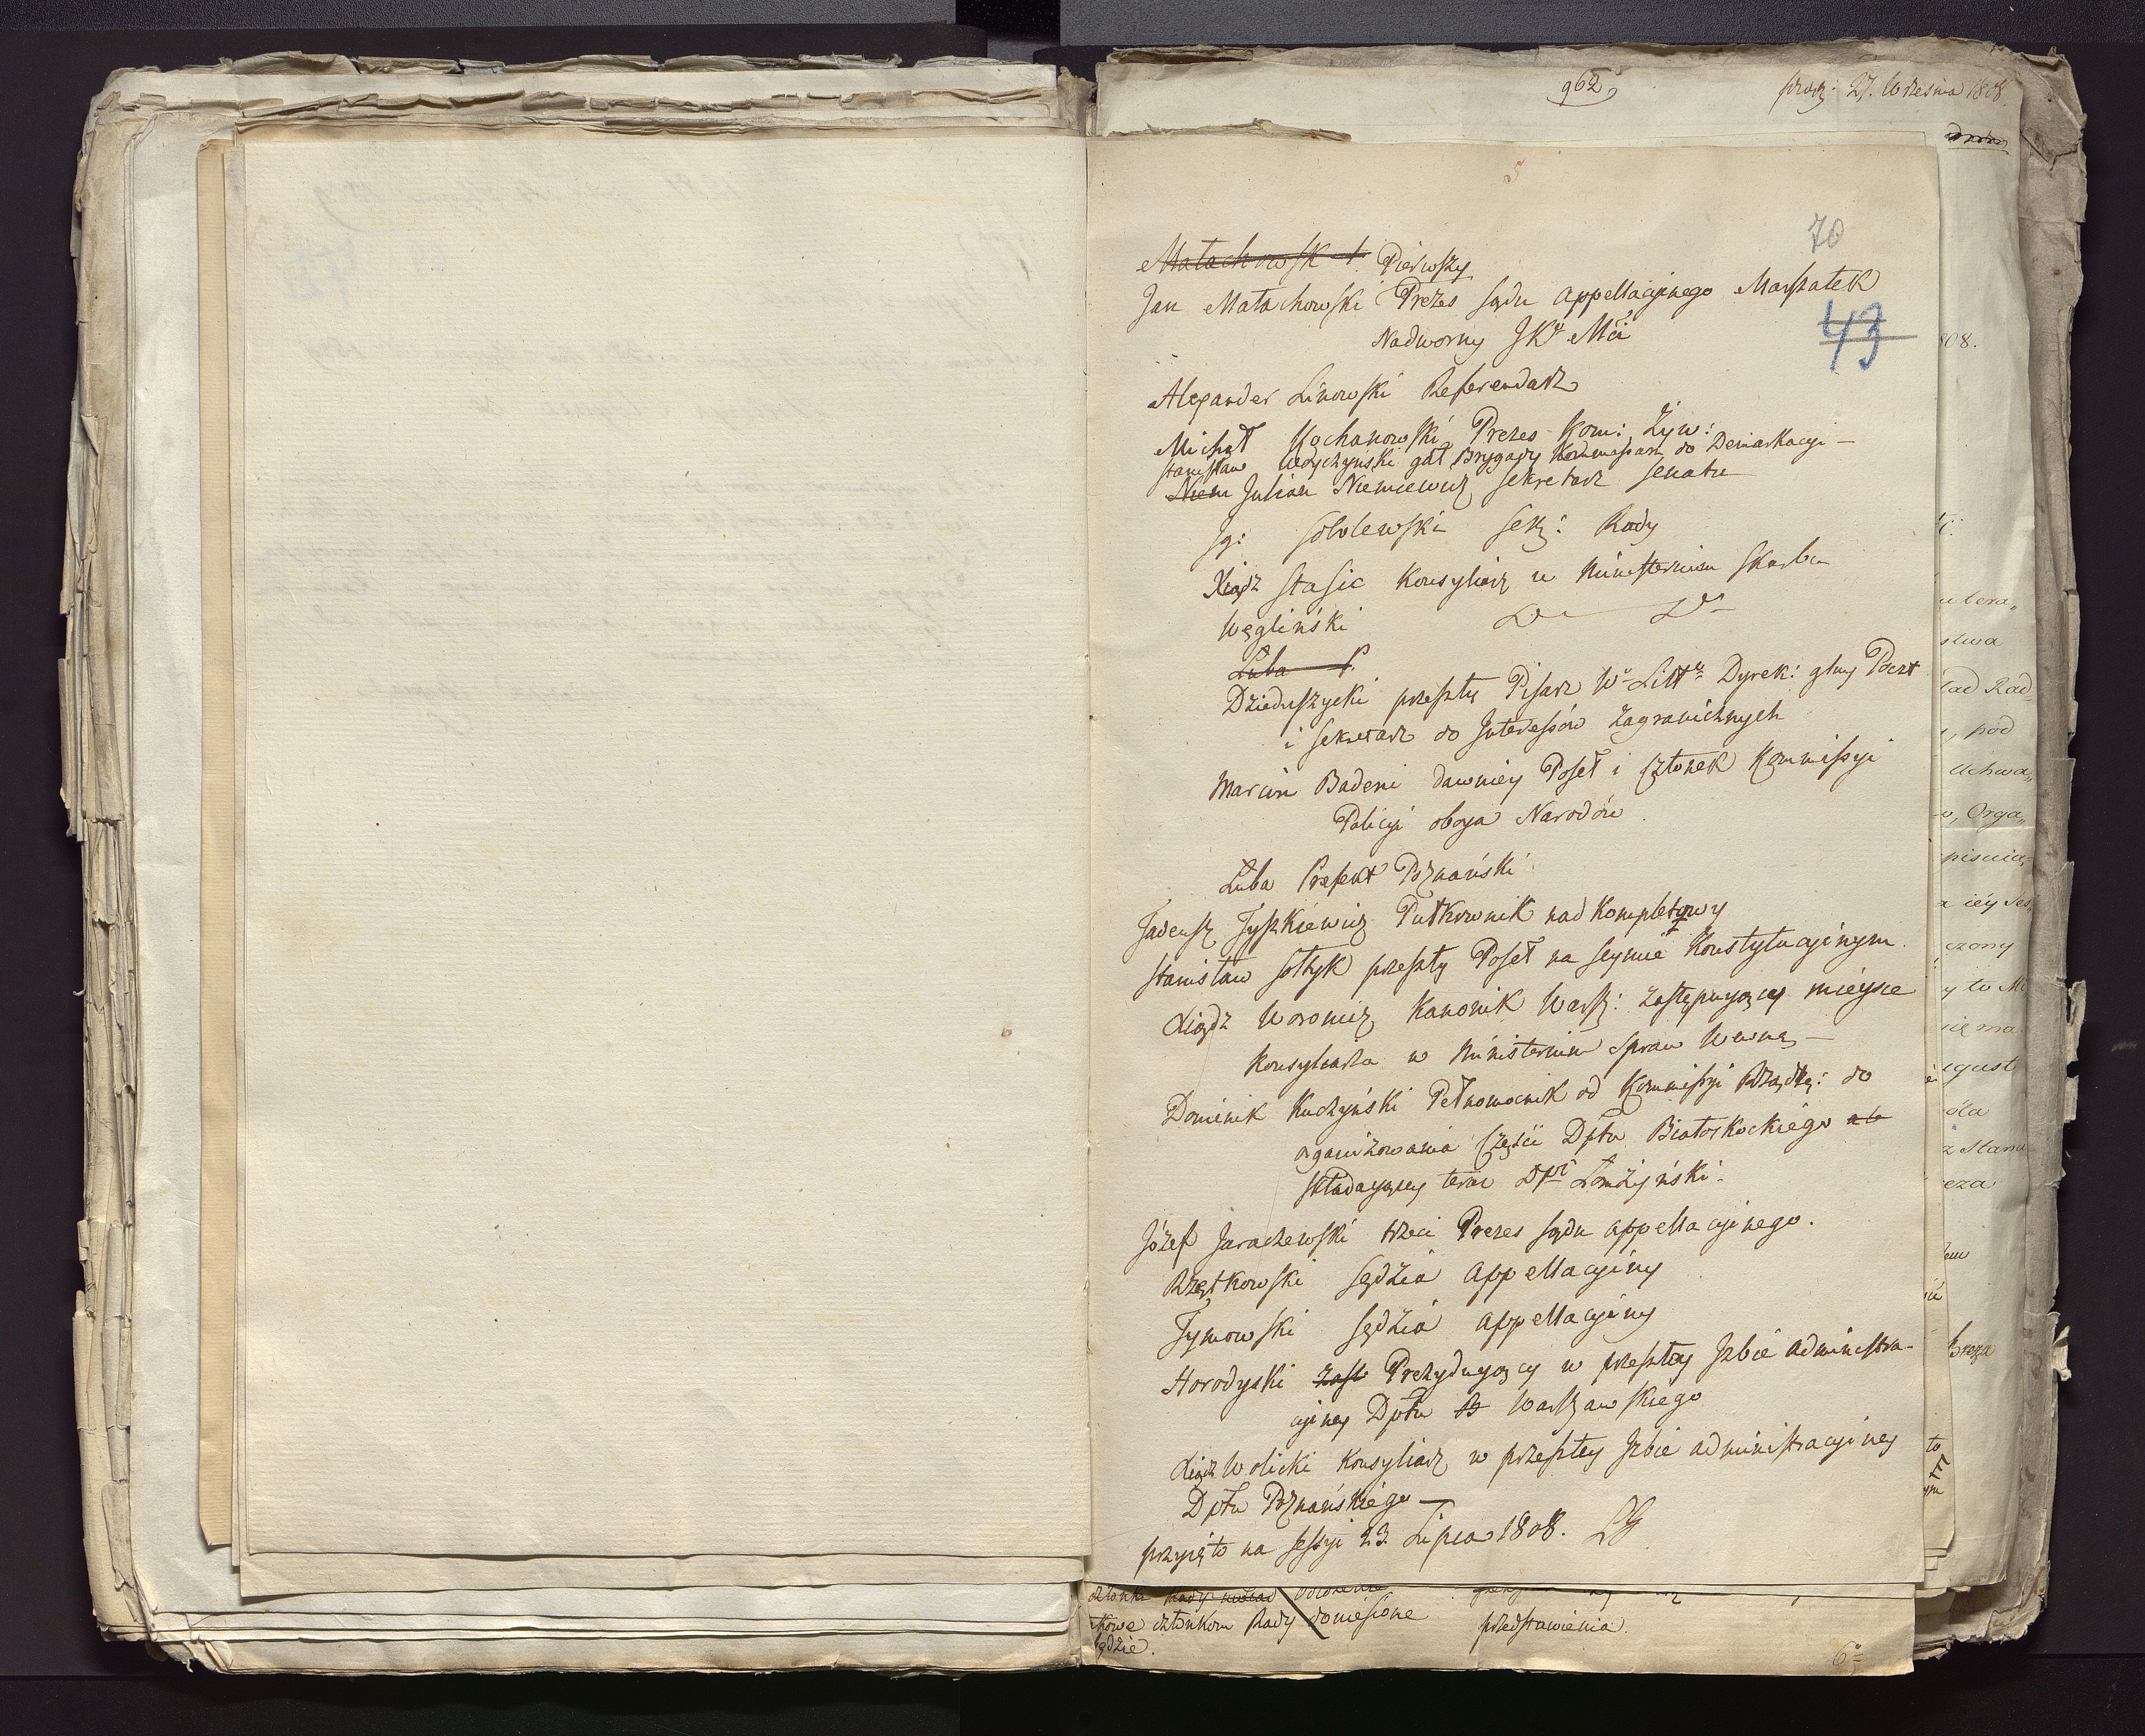 962
27. Września 1808.
5
70
Małachowski Pierwszy
Jan Małachowski Prezes sądu Appellacyinego Marszałek
43
Nadworny JKr Mći
808.
Alexander Linowski Referendarz
Michał Kochanowski Prezes Kom: Żyw:
Stanisław Woyczyński gał Brygady Kommissarz do Demarkacyi —
Niem Julian Niemcewicz sekretarz senatu
Ig: Sobolewski Sekr: Rady
Xiądz Stasic Konsyliarz w Ministerium Skarbu
Węgliński Do Do
Łuba P.
Dzieduszycki przeszły Pisarz W° Litt° Dyrek: głny Poczt
i sekretarz do Interessów Zagranicznych
Marcin Badeni dawniey Poseł i członek Kommissyi
Policyi oboyga Narodów
Łuba Prefekt Poznański
Tadeusz Tyszkiewicz Pułkownik nadkompletowy
Stanisław Sołtyk przeszły Poseł na Seymie Konstytucyinym.
Xiądz Woronicz Kanonik Warsz: Zastępuyący mieysce
Konsyliarza w Ministerium Spraw Wewnę —
Dominik Kuczyński Pełnomocnik od Kommissyi Rządzą: do
organizowania części Dptu Białostockiego
składaiącey teraz Dpt Łomżyński.
Józef Jaraczewski trzeci Prezes sądu appellacyinego.
Rzętkowski sędzia Appellacyiny
Tymowski sędzia appellacyiny
Horodyski zast Prezyduyący w przeszłey Izbie administra-
cyiney Dptu Warszawskiego
Xiądz Wolicki Konsyliarz w przeszłey Izbie administracyiney
Dptu Poznańskiego —
przyięto na sessyi 23. Lipca 1808. LG
członkom Rady doniesione przedstawienia.
będzie.
6°